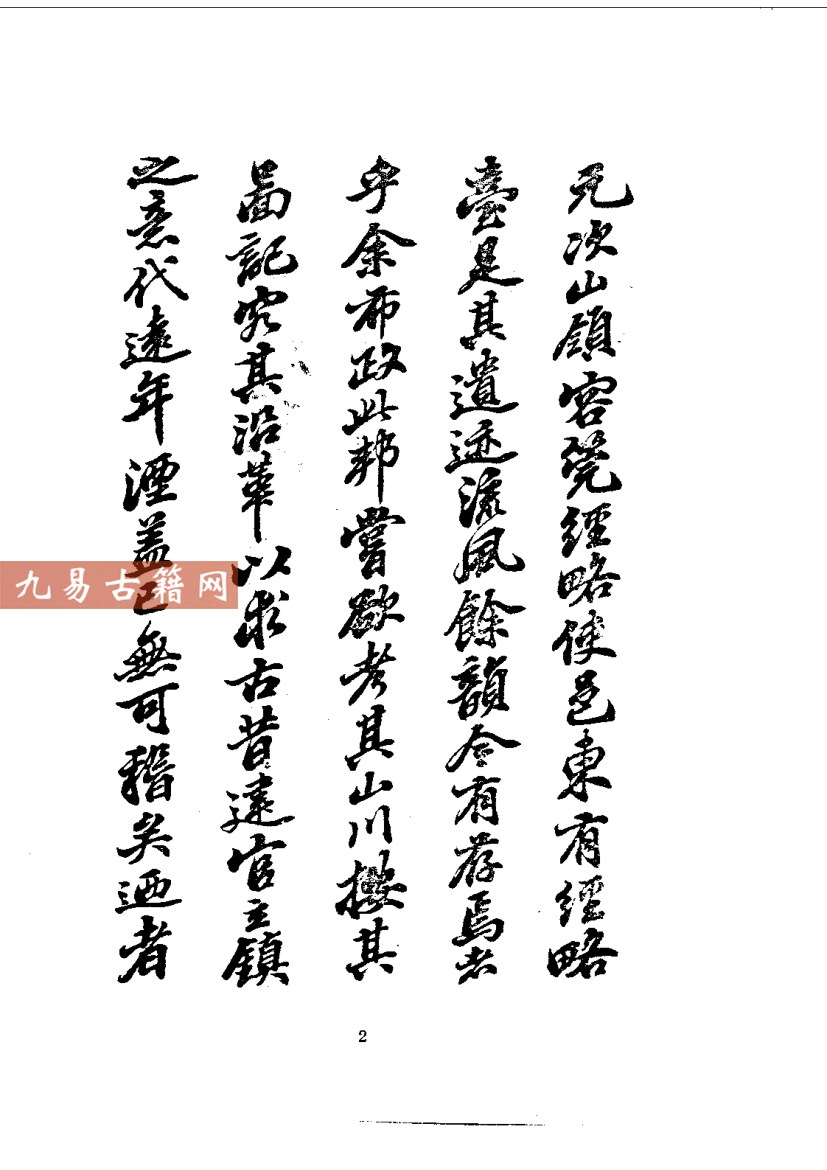 元次山領容筦經略使邑東有經略
臺是其遺迹流風餘韻今有存焉者
乎余布政此邦嘗欲考其山川撫其
圖記究其沿革以求古昔建官立鎮
之意代遠年湮蓋已無可稽矣迺者
九易古籍网
2